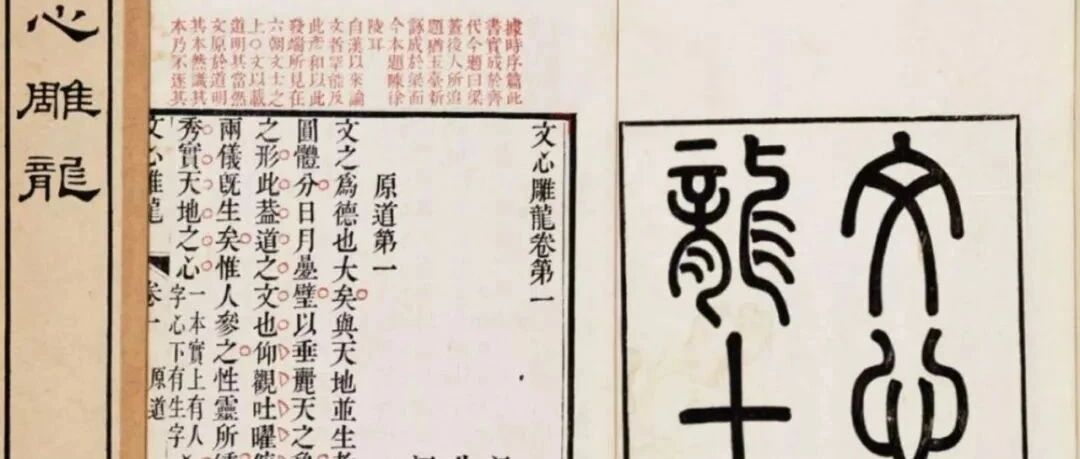 文心
龍十
據時序篇此
書實成於齊
代今題曰梁
蓋後人所追
題猶玉臺新
詠成於梁而
今本題陳徐
陵耳
自漢以來論
文者罕能及
此彥和以此
發端所見在
六朝文士之
上○文以載
道明其當然
文原於道明
其本然識其
本乃不逐其
文心雕龍卷第一
原道第一
文之爲德也大矣與天地並生
圓體分日月疊璧以垂麗天之
之形此蓋道之文也仰觀吐曜
兩儀旣生矣惟人參之性靈所
秀實天地之心一本實上有人
字心下有生字
文心雕龍 卷一 原道
心雕龍